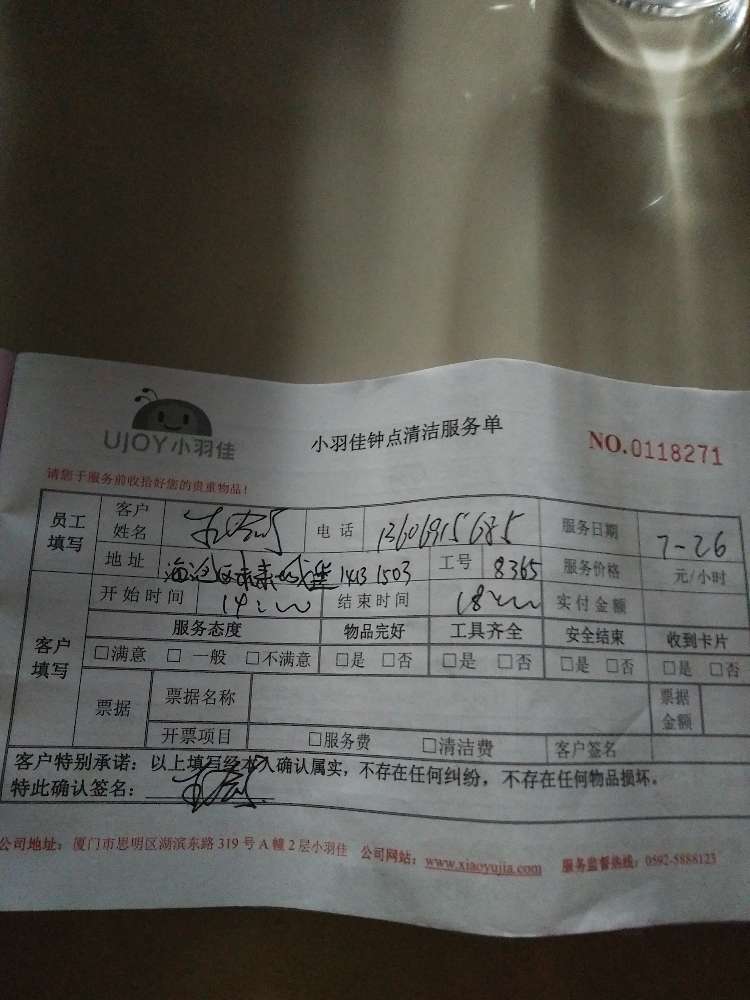 UJOY小羽佳
小羽佳钟点清洁服务单
NO.0118271
请您于服务前收拾好您的贵重物品！
员工填写 客户姓名 电话 13606915685 服务日期 7-26
地址 海沧区未来 1413 1503 工号 8365 服务价格 元/小时
客户填写 开始时间 14:00 结束时间 18:00 实付金额
服务态度 物品完好 工具齐全 安全结束 收到卡片
□满意 □一般 □不满意 □是 □否 □是 □否 □是 □否 □是 □否
票据 票据名称 票据金额
开票项目 □服务费 □清洁费 客户签名
客户特别承诺：以上填写经本人确认属实，不存在任何纠纷，不存在任何物品损坏。
特此确认签名：
公司地址：厦门市思明区湖滨东路319号A幢2层小羽佳 公司网站：www.xiaoyujia.com 服务监督热线：0592-5888123